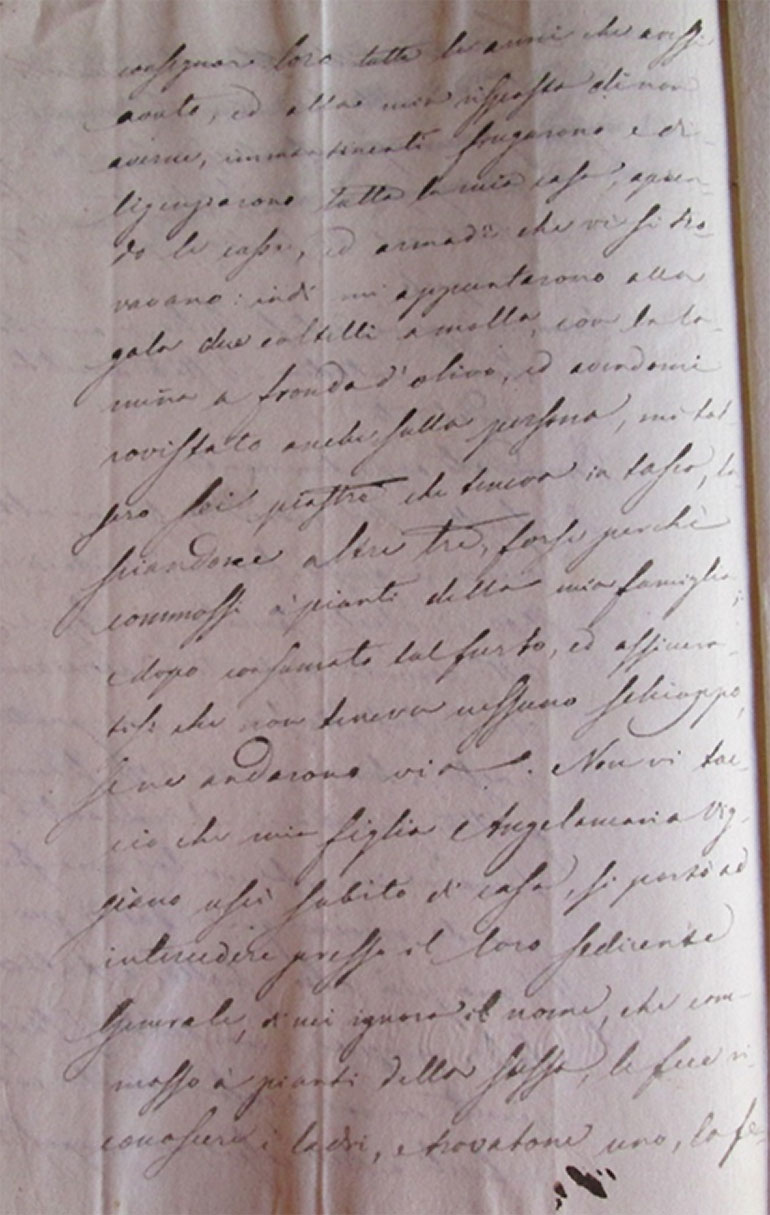 consegnar loro tutte le armi che avessi
avuto, ed alla mia risposta di non
averne, immantinenti frugarono e di-
ligenziarono tutta la mia casa, apren-
do le casse, ed armadii che vi si tro-
vavano: indi mi appuntarono alla
gola due coltelli a molla, con la la-
mina a fronda d'olivo, ed avendomi
rovistato anche sulla persona, mi tol-
sero sei piastre che teneva in tasca, la
sciandone altre tre, forse perchè
commossi a' pianti della mia famiglia;
e dopo consumato tal furto, ed assicura-
tisi che non teneva nessuno schioppo,
se ne andarono via. Non vi tac-
cio che mia figlia Angelamaria Vig-
giano uscì subito di casa, si portò ad
intercedere presso il loro sedicente
Generale, di cui ignoro il nome, che com-
mosso a' pianti della stessa, le fece ri-
conoscere i ladri, e trovatone uno, lo fe-